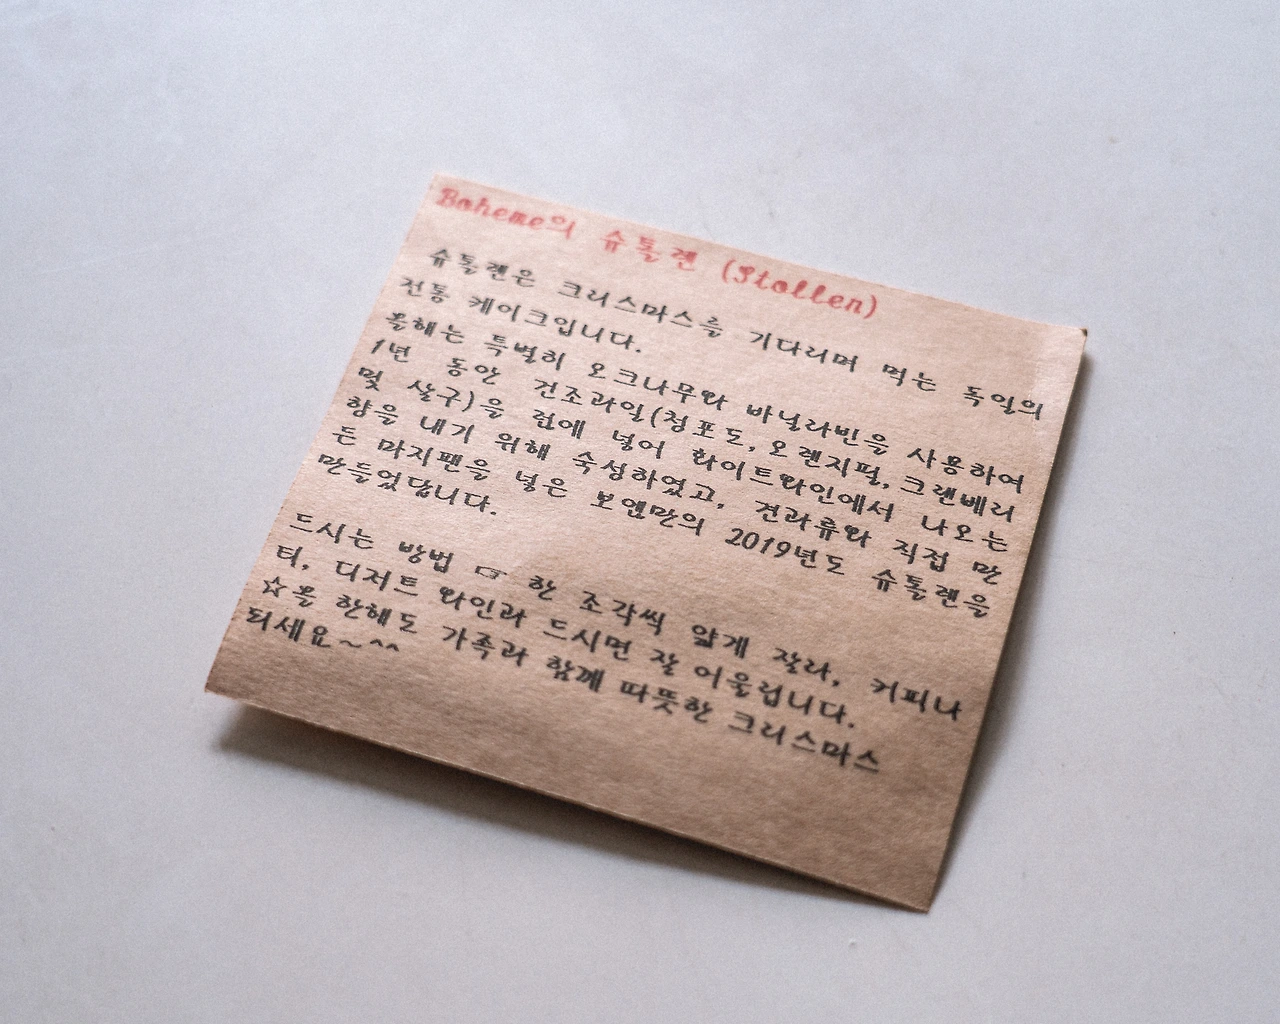 Boheme의 슈톨렌 (Stollen)
슈톨렌은 크리스마스를 기다리며 먹는 독일의
전통 케이크입니다.
올해는 특별히 오크나무와 바닐라빈을 사용하여
1년 동안 건조과일(청포도, 오렌지필, 크랜베리
및 살구)을 럼에 넣어 화이트와인에서 나오는
향을 내기 위해 숙성하였고, 견과류와 직접 만
든 마지팬을 넣은 보엠만의 2019년도 슈톨렌을
만들었답니다.
드시는 방법 ☞ 한 조각씩 얇게 잘라, 커피나
티, 디저트 와인과 드시면 잘 어울립니다.
☆올 한해도 가족과 함께 따뜻한 크리스마스
되세요~^^